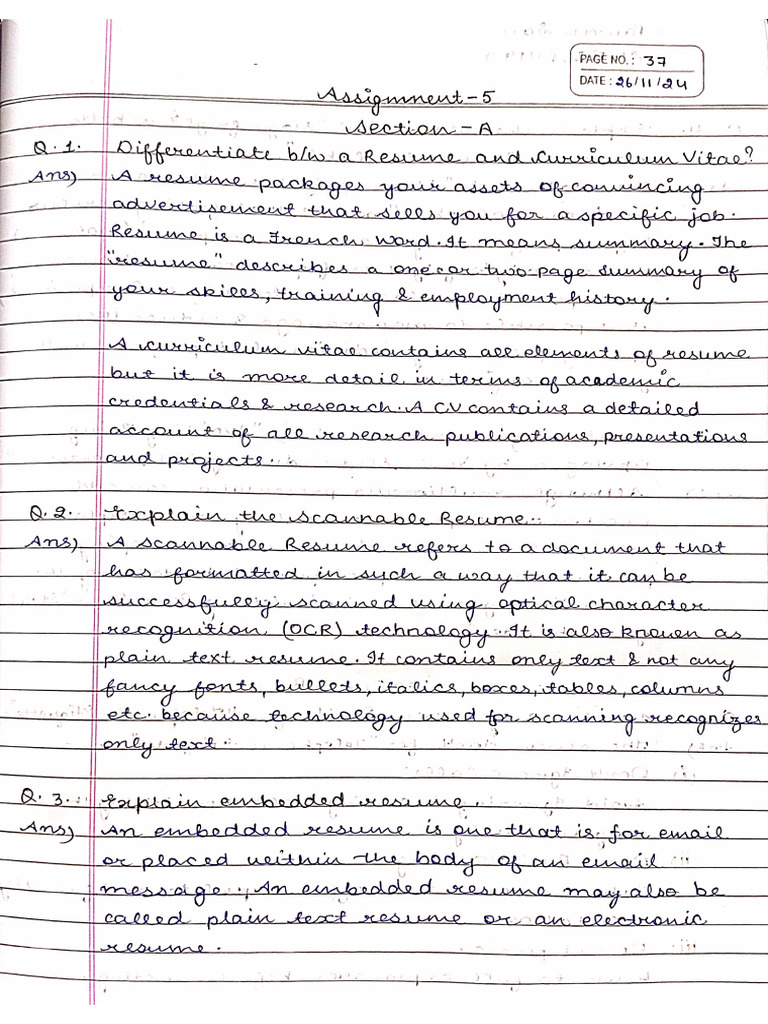 PAGE NO.: 37
DATE: 26/11/24
Assignment-5
Section-A
Q.1. Differentiate b/w a Resume and Curriculum Vitae?
Ans) A resume packages your assets of convincing
advertisement that sells you for a specific job.
Resume is a French word. It means summary. The
"resume" describes a one or two-page summary of
your skills, training & employment history.
A curriculum vitae contains all elements of resume
but it is more detail in terms of academic
credentials & research. A CV contains a detailed
account of all research publications, presentations
and projects.
Q.2. Explain the Scannable Resume.
Ans) A Scannable Resume refers to a document that
has formatted in such a way that it can be
successfully scanned using optical character
recognition (OCR) technology. It is also known as
plain text resume. It contains only text & not any
fancy fonts, bullets, italics, boxes, tables, columns
etc. because technology used for scanning recognizes
only text.
Q.3. Explain embedded resume.
Ans) An embedded resume is one that is for email
or placed within the body of an email
message. An embedded resume may also be
called plain text resume or an electronic
resume.